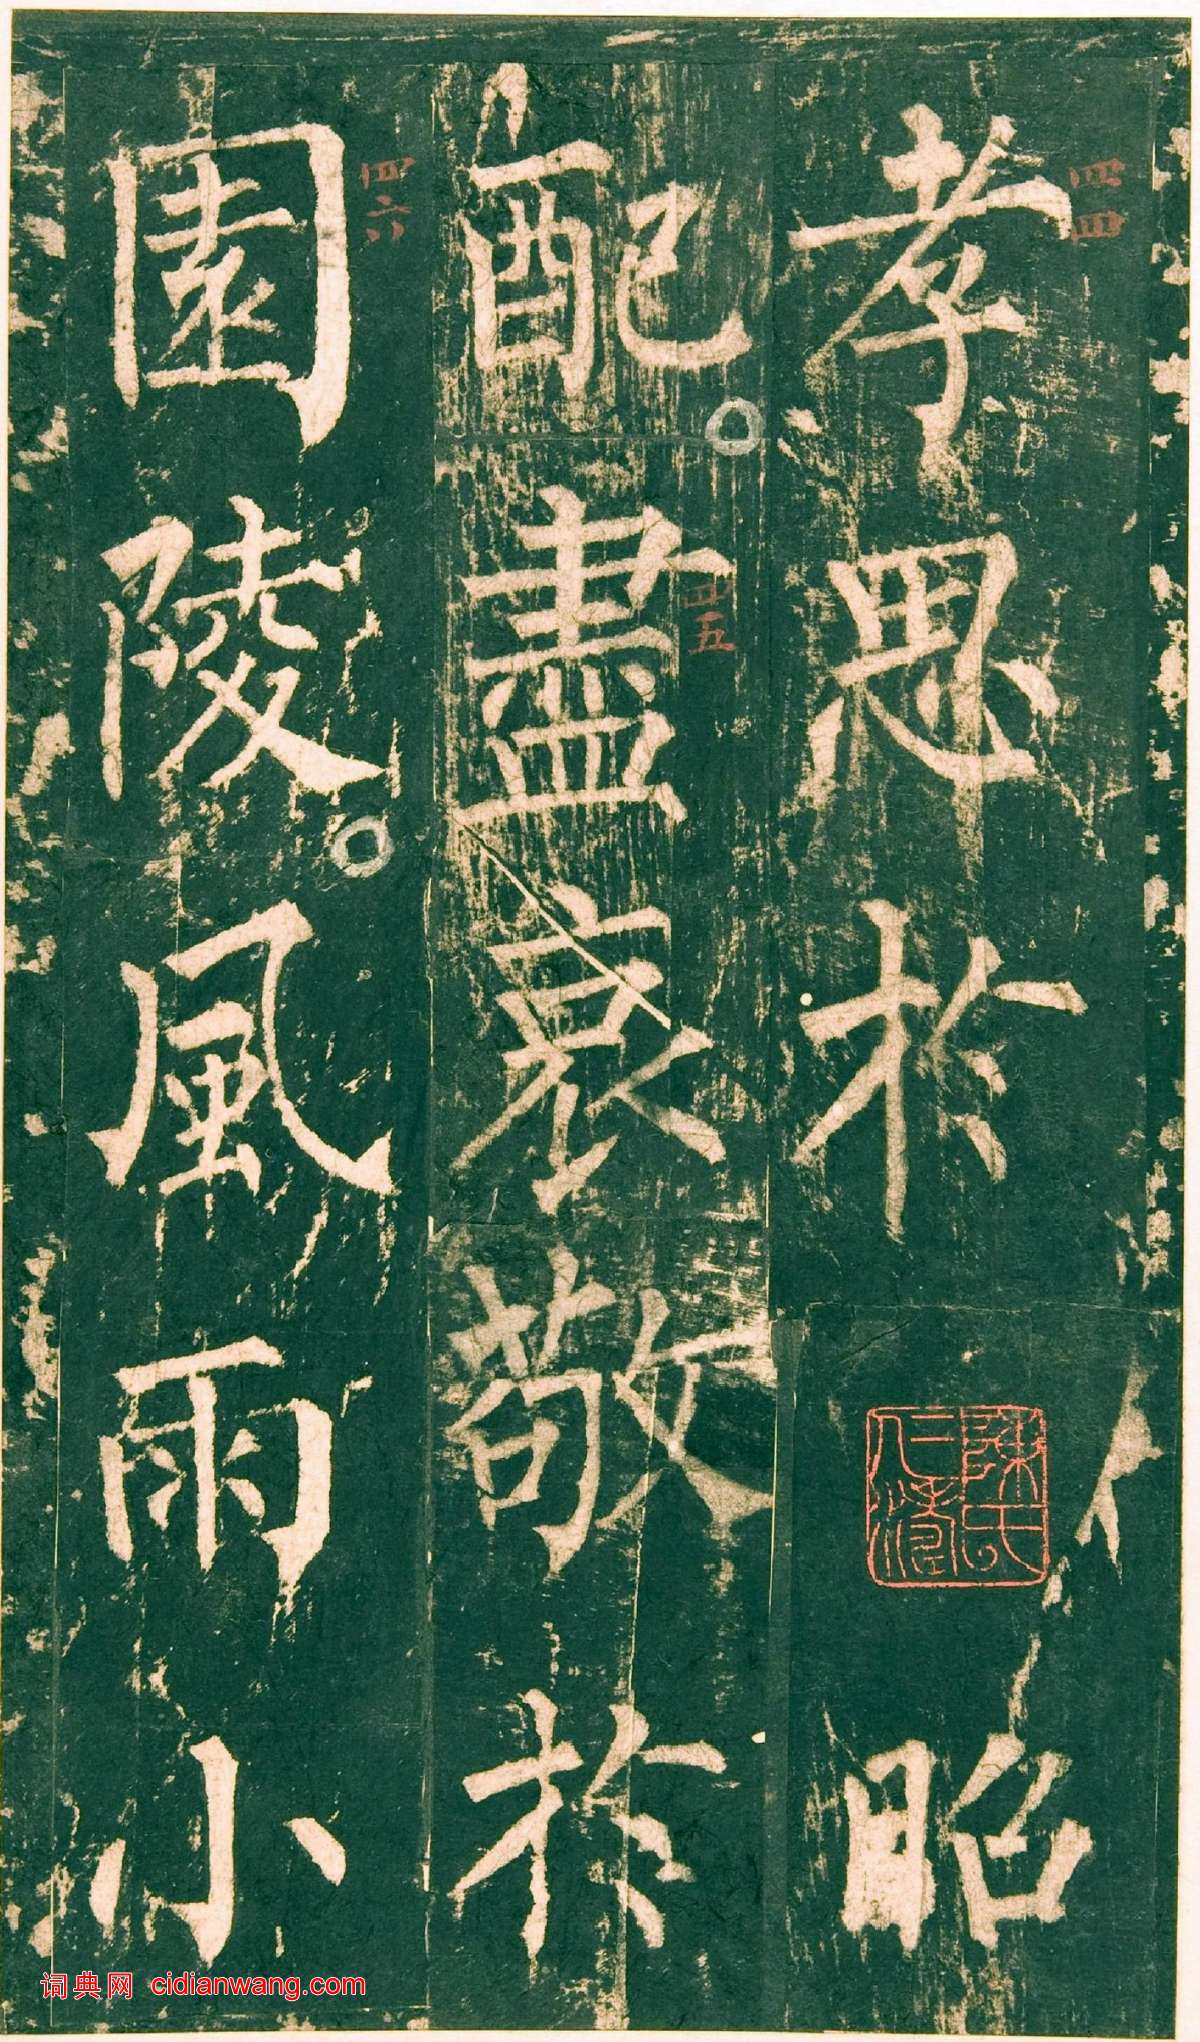 孝思於昭
配盡哀敬於
園陵風雨小
四四
四五
四六
陳氏
詞典网 cidianwang.com